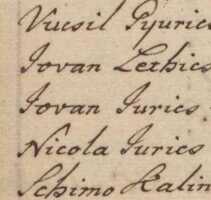 Vucsil Gyurics
Jovan Lethics
Jovan Jurics
Nicola Jurics
Schimo Kalin